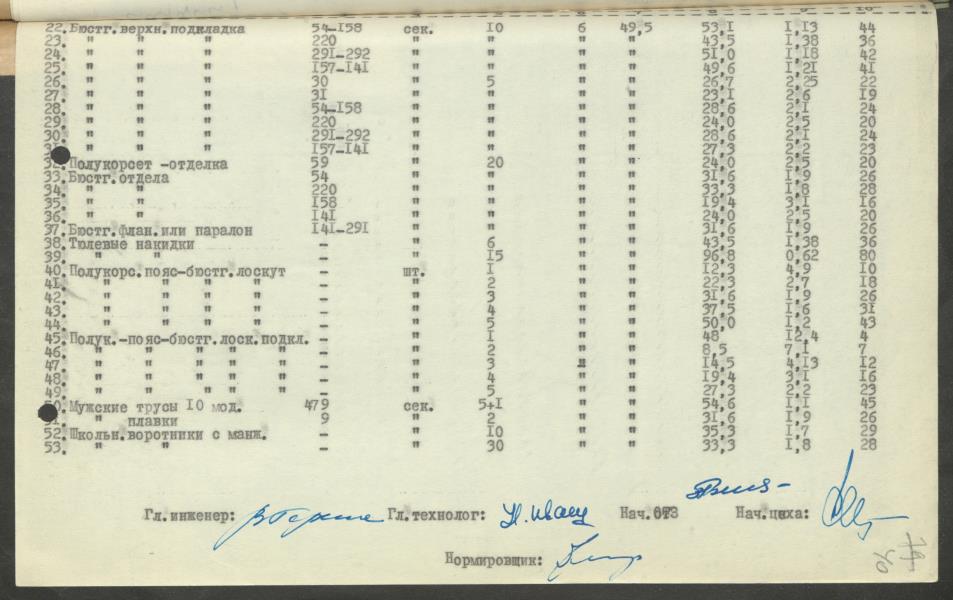 22. Бюстг.верхн.подкладка 54-158 сек. 10 6 49,5 53,1 1,13 44
23. " " " 220 " " " " 43,5 1,38 36
24. " " " 291-292 " " " " 51,0 1,18 42
25. " " " 157-141 " " " " 49,6 1,21 41
26. " " " 30 " 5 " " 26,7 2,25 22
27. " " " 31 " " " " 23,1 2,6 19
28. " " " 54-158 " " " " 28,6 2,1 24
29. " " " 220 " " " " 24,0 2,5 20
30. " " " 291-292 " " " " 28,6 2,1 24
31. " " " 157-141 " " " " 27,3 2,2 23
32. Полукорсет -отделка 59 " 20 " " 24,0 2,5 20
33. Бюстг.отдела 54 " " " " 31,6 1,9 26
34. " " 220 " " " " 33,3 1,8 28
35. " " 158 " " " " 19,4 3,1 16
36. " " 141 " " " " 24,0 2,5 20
37. Бюстг.флан.или паралон 141-291 " " " " 31,6 1,9 26
38. Тюлевые накидки - " 6 " " 43,5 1,38 36
39. " " - " 15 " " 96,8 0,62 80
40. Полукорс.пояс-бюстг.лоскут - шт. 1 " " 12,3 4,9 10
41. " " " " - " 2 " " 22,3 2,7 18
42. " " " " - " 3 " " 31,6 1,9 26
43. " " " " - " 4 " " 37,5 1,6 31
44. " " " " - " 5 " " 50,0 1,2 43
45. Полук.-пояс-бюстг.лоск.подкл. - " 1 " " 48 12,4 4
46. " " " " " - " 2 " " 8,5 7,1 7
47. " " " " " - " 3 " " 14,5 4,13 12
48. " " " " " - " 4 " " 19,4 3,1 16
49. " " " " " - " 5 " " 27,3 2,2 23
50. Мужские трусы 10 мод. 479 сек. 5+1 " " 54,6 1,1 45
51. " плавки 9 " 2 " " 31,6 1,9 26
52. Школьн.воротники с манж. - " 10 " " 35,3 1,7 29
53. " " - " 30 " " 33,3 1,8 28
Гл.инженер: Гл.технолог: Н. Иванц Нач.ОТЗ Нач.цеха:
Нормировщик:
40